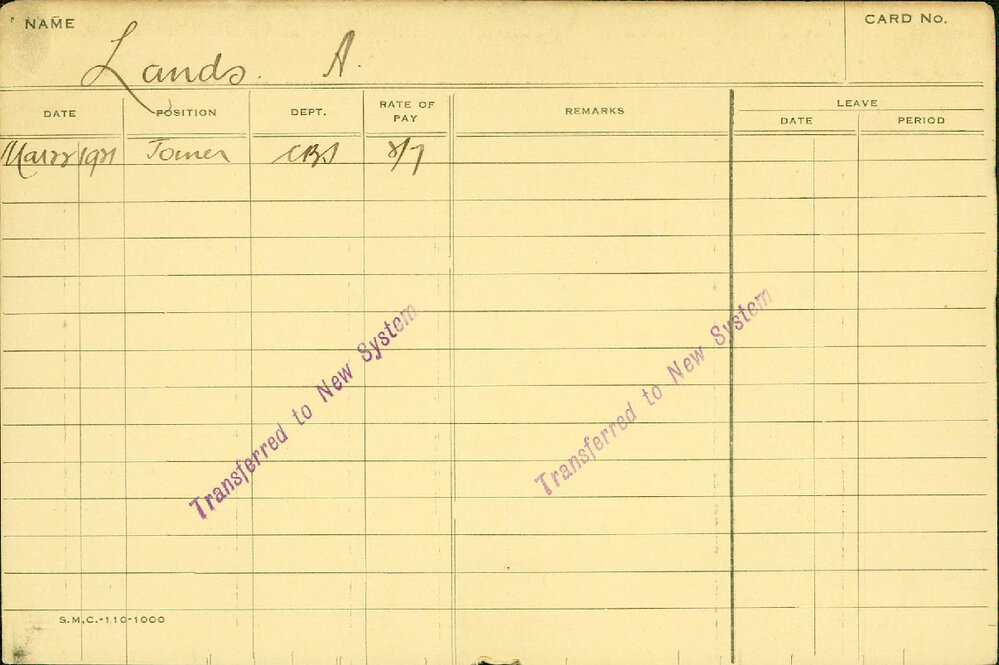 NAME
Lands. A.
CARD No.
DATE POSITION DEPT. RATE OF PAY REMARKS LEAVE
DATE PERIOD
Mar 22 1921 Joiner CBS 8/7
Transferred to New System
Transferred to New System
S.M.C.-110-1000